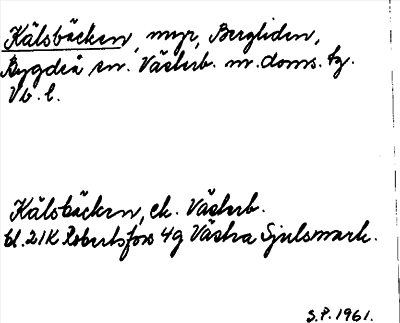 Kälsbäcken, myr, Bergliden,
Bygdeå sn. Västerb. m. doms. fg.
Vb. l.
Kälsbäcken, ek. Västerb.
bl. 21K Robertsfors 4g Västra Sjulsmark.
S.P. 1961.